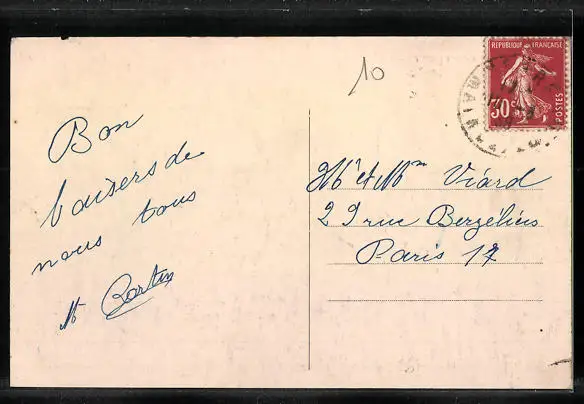 10
REPUBLIQUE FRANÇAISE
30c
POSTES
Bon
baisers de
nous tous
M
Mr et Mme Viard
29 rue Berzélius
Paris 17